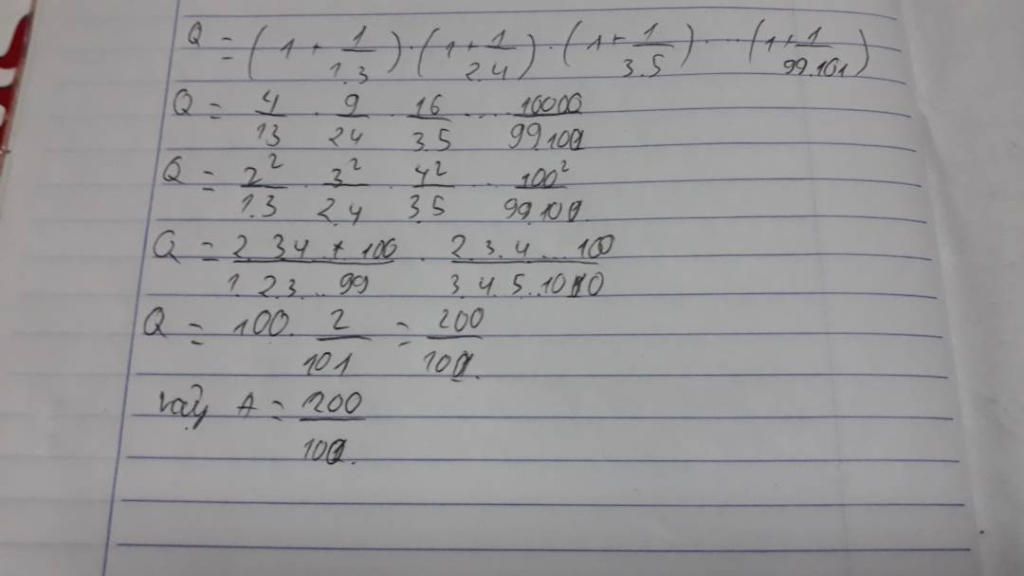 Q = (1 + 1/1.3) . (1 + 1/2.4) . (1 + 1/3.5) ... (1 + 1/99.101)
Q = 4/13 . 9/24 . 16/35 ... 10000/99101
Q = 2²/1.3 . 3²/2.4 . 4²/3.5 ... 100²/99.101
Q = 2.34 * 100/1.2.3...99 . 2.3.4...100/3.4.5...
Q = 100. 2/101 = 200/101.
vậy A = 200/101.